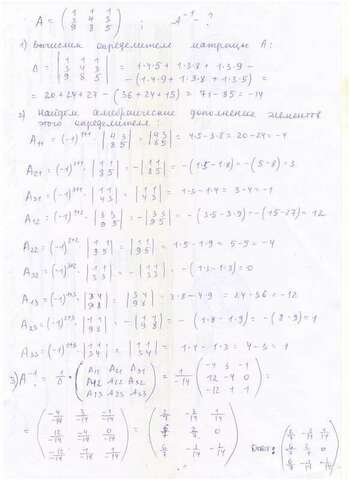 A = ( 1 1 1 ; 3 4 3 ; 9 8 5 ) ; A⁻¹ - ?
1) вычислим определитель матрицы A:
Δ = | 1 1 1 ; 3 4 3 ; 9 8 5 | = 1·4·5 + 1·3·8 + 1·3·9 -
- (1·4·9 + 1·3·8 + 1·3·5) =
= 20 + 24 + 27 - (36 + 24 + 15) = 71 - 85 = -14
2) найдем алгебраические дополнения элементов
этого определителя:
A₁₁ = (-1)¹⁺¹ · | 4 3 ; 8 5 | = | 4 3 ; 8 5 | = 4·5 - 3·8 = 20 - 24 = -4
A₂₁ = (-1)²⁺¹ · | 1 1 ; 8 5 | = - | 1 1 ; 8 5 | = - (1·5 - 1·8) = - (5 - 8) = 3
A₃₁ = (-1)³⁺¹ · | 1 1 ; 4 3 | = | 1 1 ; 4 3 | = 1·3 - 1·4 = 3 - 4 = -1
A₁₂ = (-1)¹⁺² · | 3 3 ; 9 5 | = - | 3 3 ; 9 5 | = - (3·5 - 3·9) = - (15 - 27) = 12
A₂₂ = (-1)²⁺² · | 1 1 ; 9 5 | = | 1 1 ; 9 5 | = 1·5 - 1·9 = 5 - 9 = -4
A₃₂ = (-1)³⁺² · | 1 1 ; 3 3 | = - | 1 1 ; 3 3 | = - (1·3 - 1·3) = 0
A₁₃ = (-1)¹⁺³ · | 3 4 ; 9 8 | = | 3 4 ; 9 8 | = 3·8 - 4·9 = 24 - 36 = -12
A₂₃ = (-1)²⁺³ · | 1 1 ; 9 8 | = - | 1 1 ; 9 8 | = - (1·8 - 1·9) = - (8 - 9) = 1
A₃₃ = (-1)³⁺³ | 1 1 ; 3 4 | = | 1 1 ; 3 4 | = 1·4 - 1·3 = 4 - 3 = 1
3) A⁻¹ = 1/Δ · ( A₁₁ A₂₁ A₃₁ ; A₁₂ A₂₂ A₃₂ ; A₁₃ A₂₃ A₃₃ ) = 1/-14 ( -4 3 -1 ; 12 -4 0 ; -12 1 1 ) =
= ( -4/-14 3/-14 -1/-14 ; 12/-14 -4/-14 0/-14 ; -12/-14 1/-14 1/-14 ) =
Ответ: